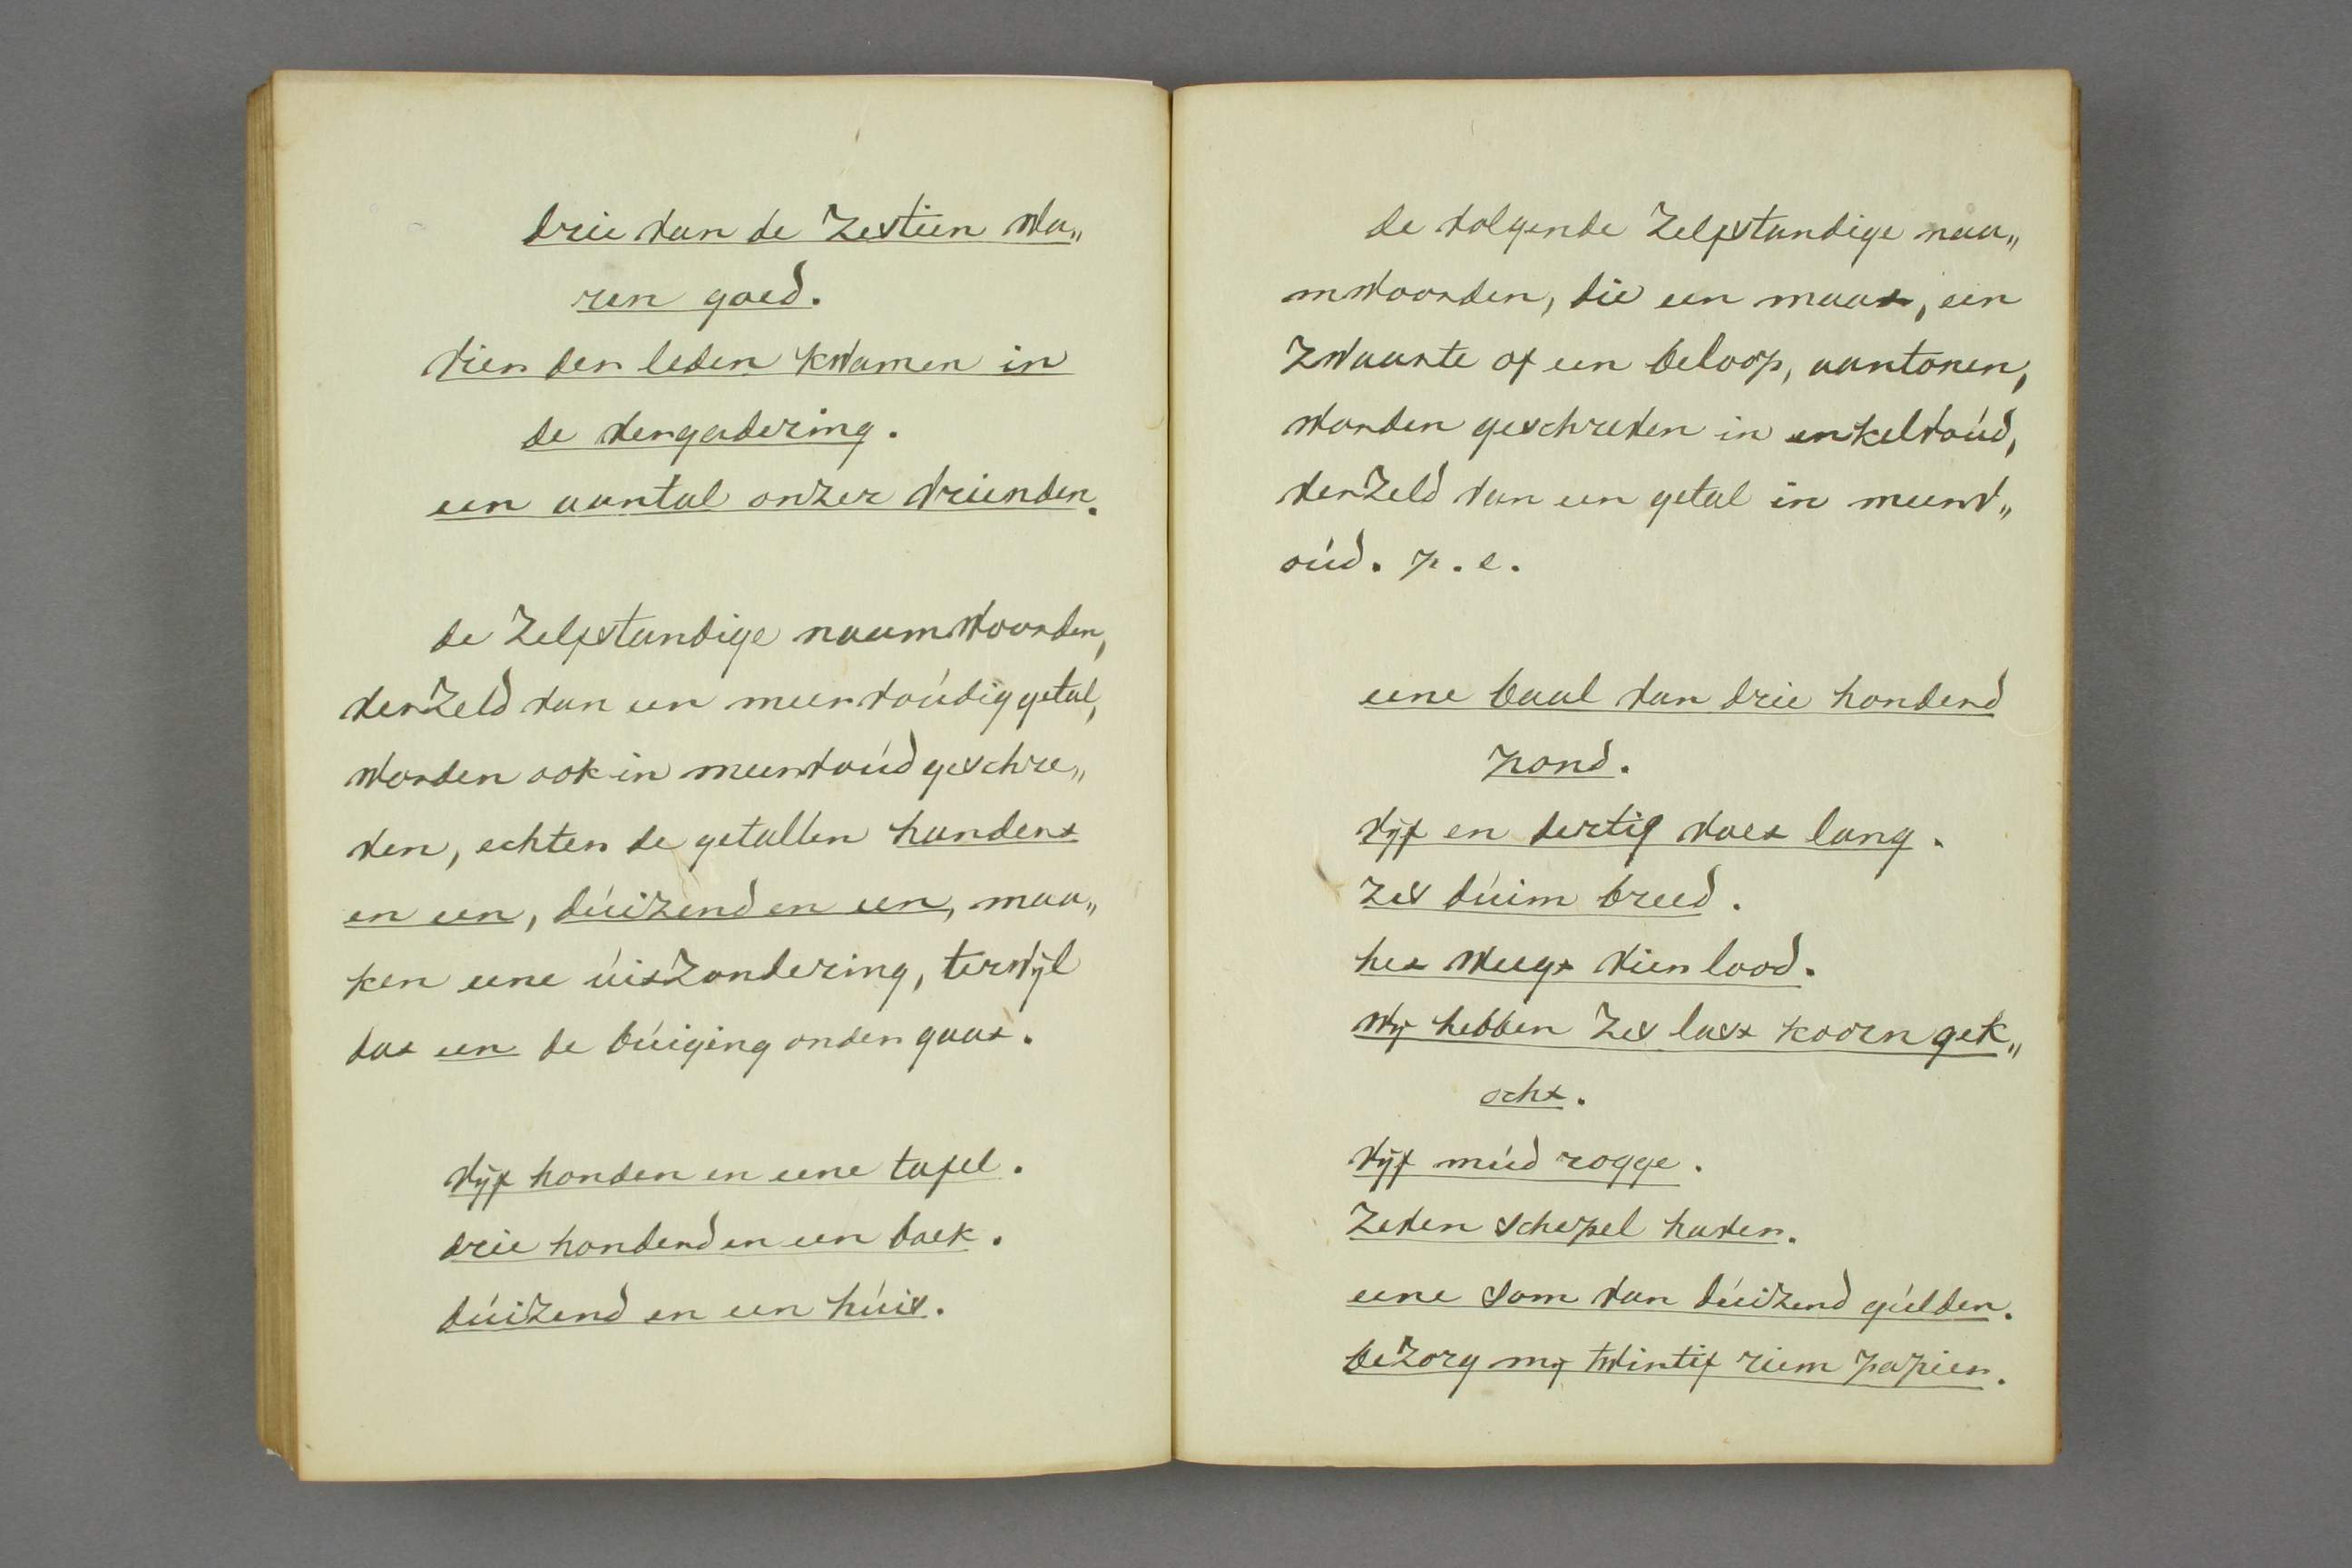 drie van de zestien wa„
ren goed.
vier der leden kwamen in
de vergadering.
een aantal onzer vrienden.
de zelfstandige naamwoorden,
verzeld van een meervoúdig getal,
worden ook in meervoúd geschre„
ven, echter de getallen handert
en een, dúizend en een, maa„
ken eene úitzondering, terwijl
dat een de búiging onder gaat.
vijf honden en eene tafel.
drie honderd en een boek.
dúizend en een húis.
de volgende zelfstandige naa„
mwoorden, die een maat, een
zwaarte of een beloop, aantonen,
worden geschreven in enkelvoúd,
verzeld van een getal in meerv„
oúd. p. e.
eene baal van drie honderd
pond.
vijf en dertig voet lang.
zes dúim breed.
het weegt vier lood.
wij hebben zes last koorn gek„
ocht.
vijf múd rogge.
zeven schepel haver.
eene som van dúizend gúlden.
bezorg mij twintif riem papier.